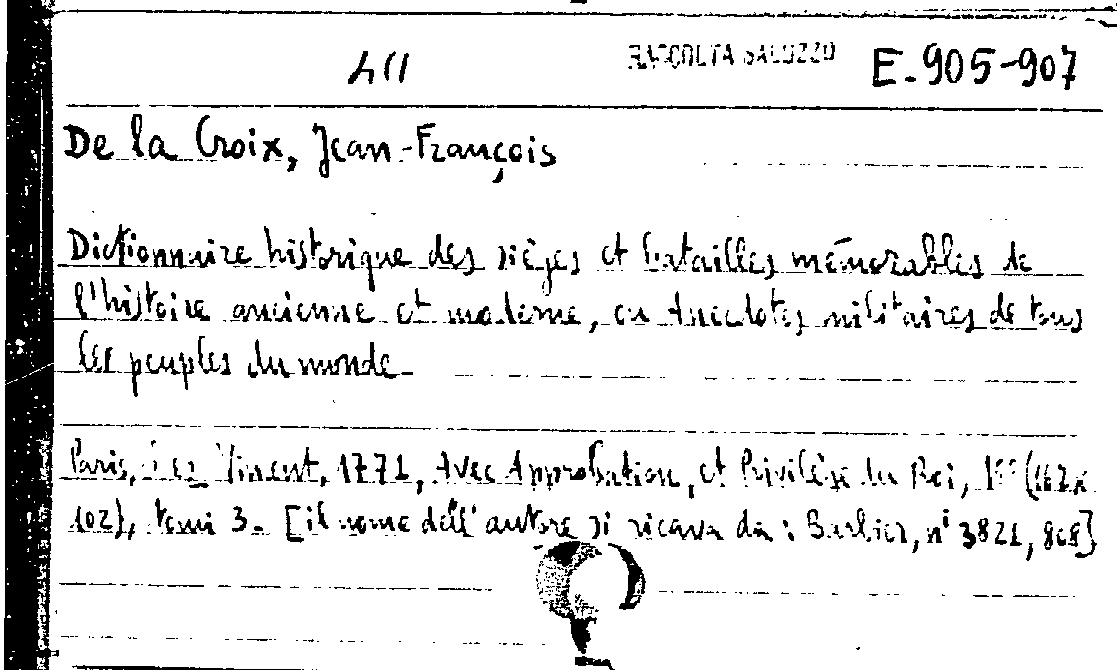 411 RACCOLTA SALUZZO E. 905-907
De la Croix, Jean-François
Dictionnaire historique des sièges et batailles mémorables de
l'histoire ancienne et moderne, ou Anecdotes militaires de tous
les peuples du monde.
Paris, chez Vincent, 1771, Avec Approbation, et Privilège du Roi, (162x
102), tomi 3. [il nome dell'autore si ricava da: Barbier, ni 3821, 868]